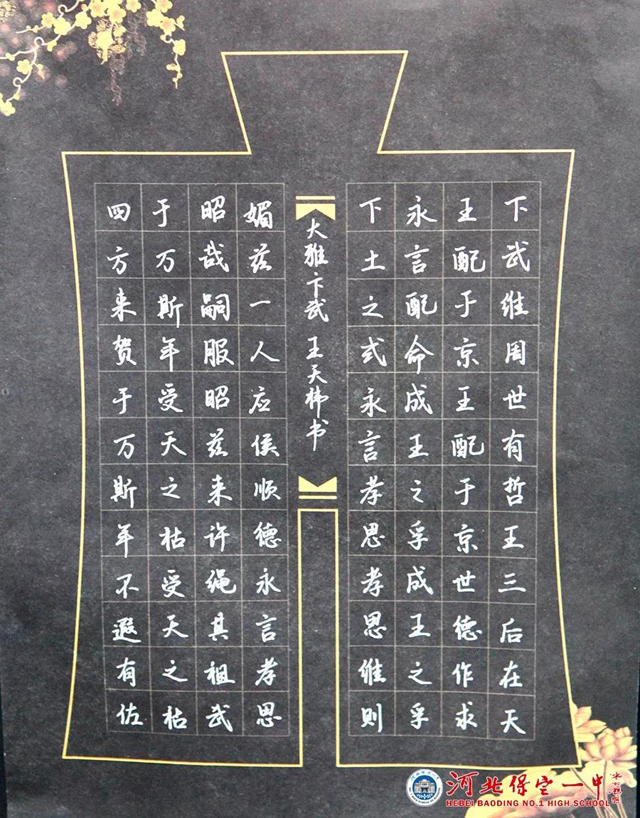 下武维周世有哲王三后在天
王配于京王配于京世德作求
永言配命成王之孚成王之孚
下土之式永言孝思孝思维则
大雅 卞武 王天祎书
媚兹一人应侯顺德永言孝思
昭哉嗣服昭兹来许绳其祖武
于万斯年受天之祜受天之祜
四方来贺于万斯年不遐有佐
河北保定一中
HEBEI BAODING NO.1 HIGH SCHOOL